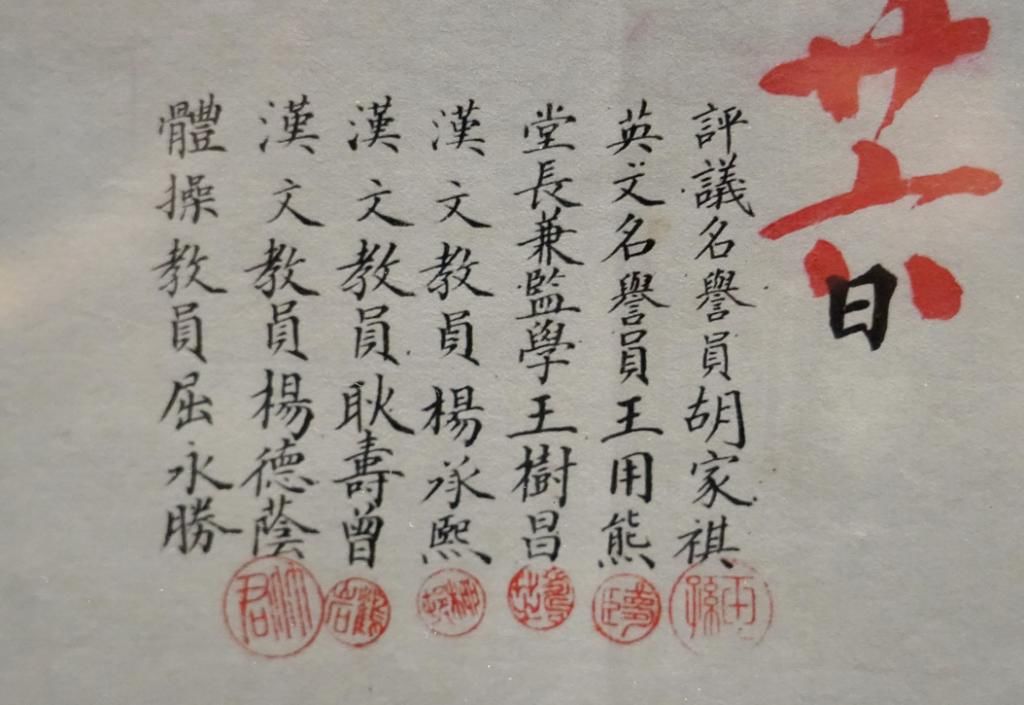 廿六日
評議名譽員胡家祺
英文名譽員王用熊
堂長兼監學王樹昌
漢文教員楊承熙
漢文教員耿壽曾
漢文教員楊德蔭
體操教員屈永勝